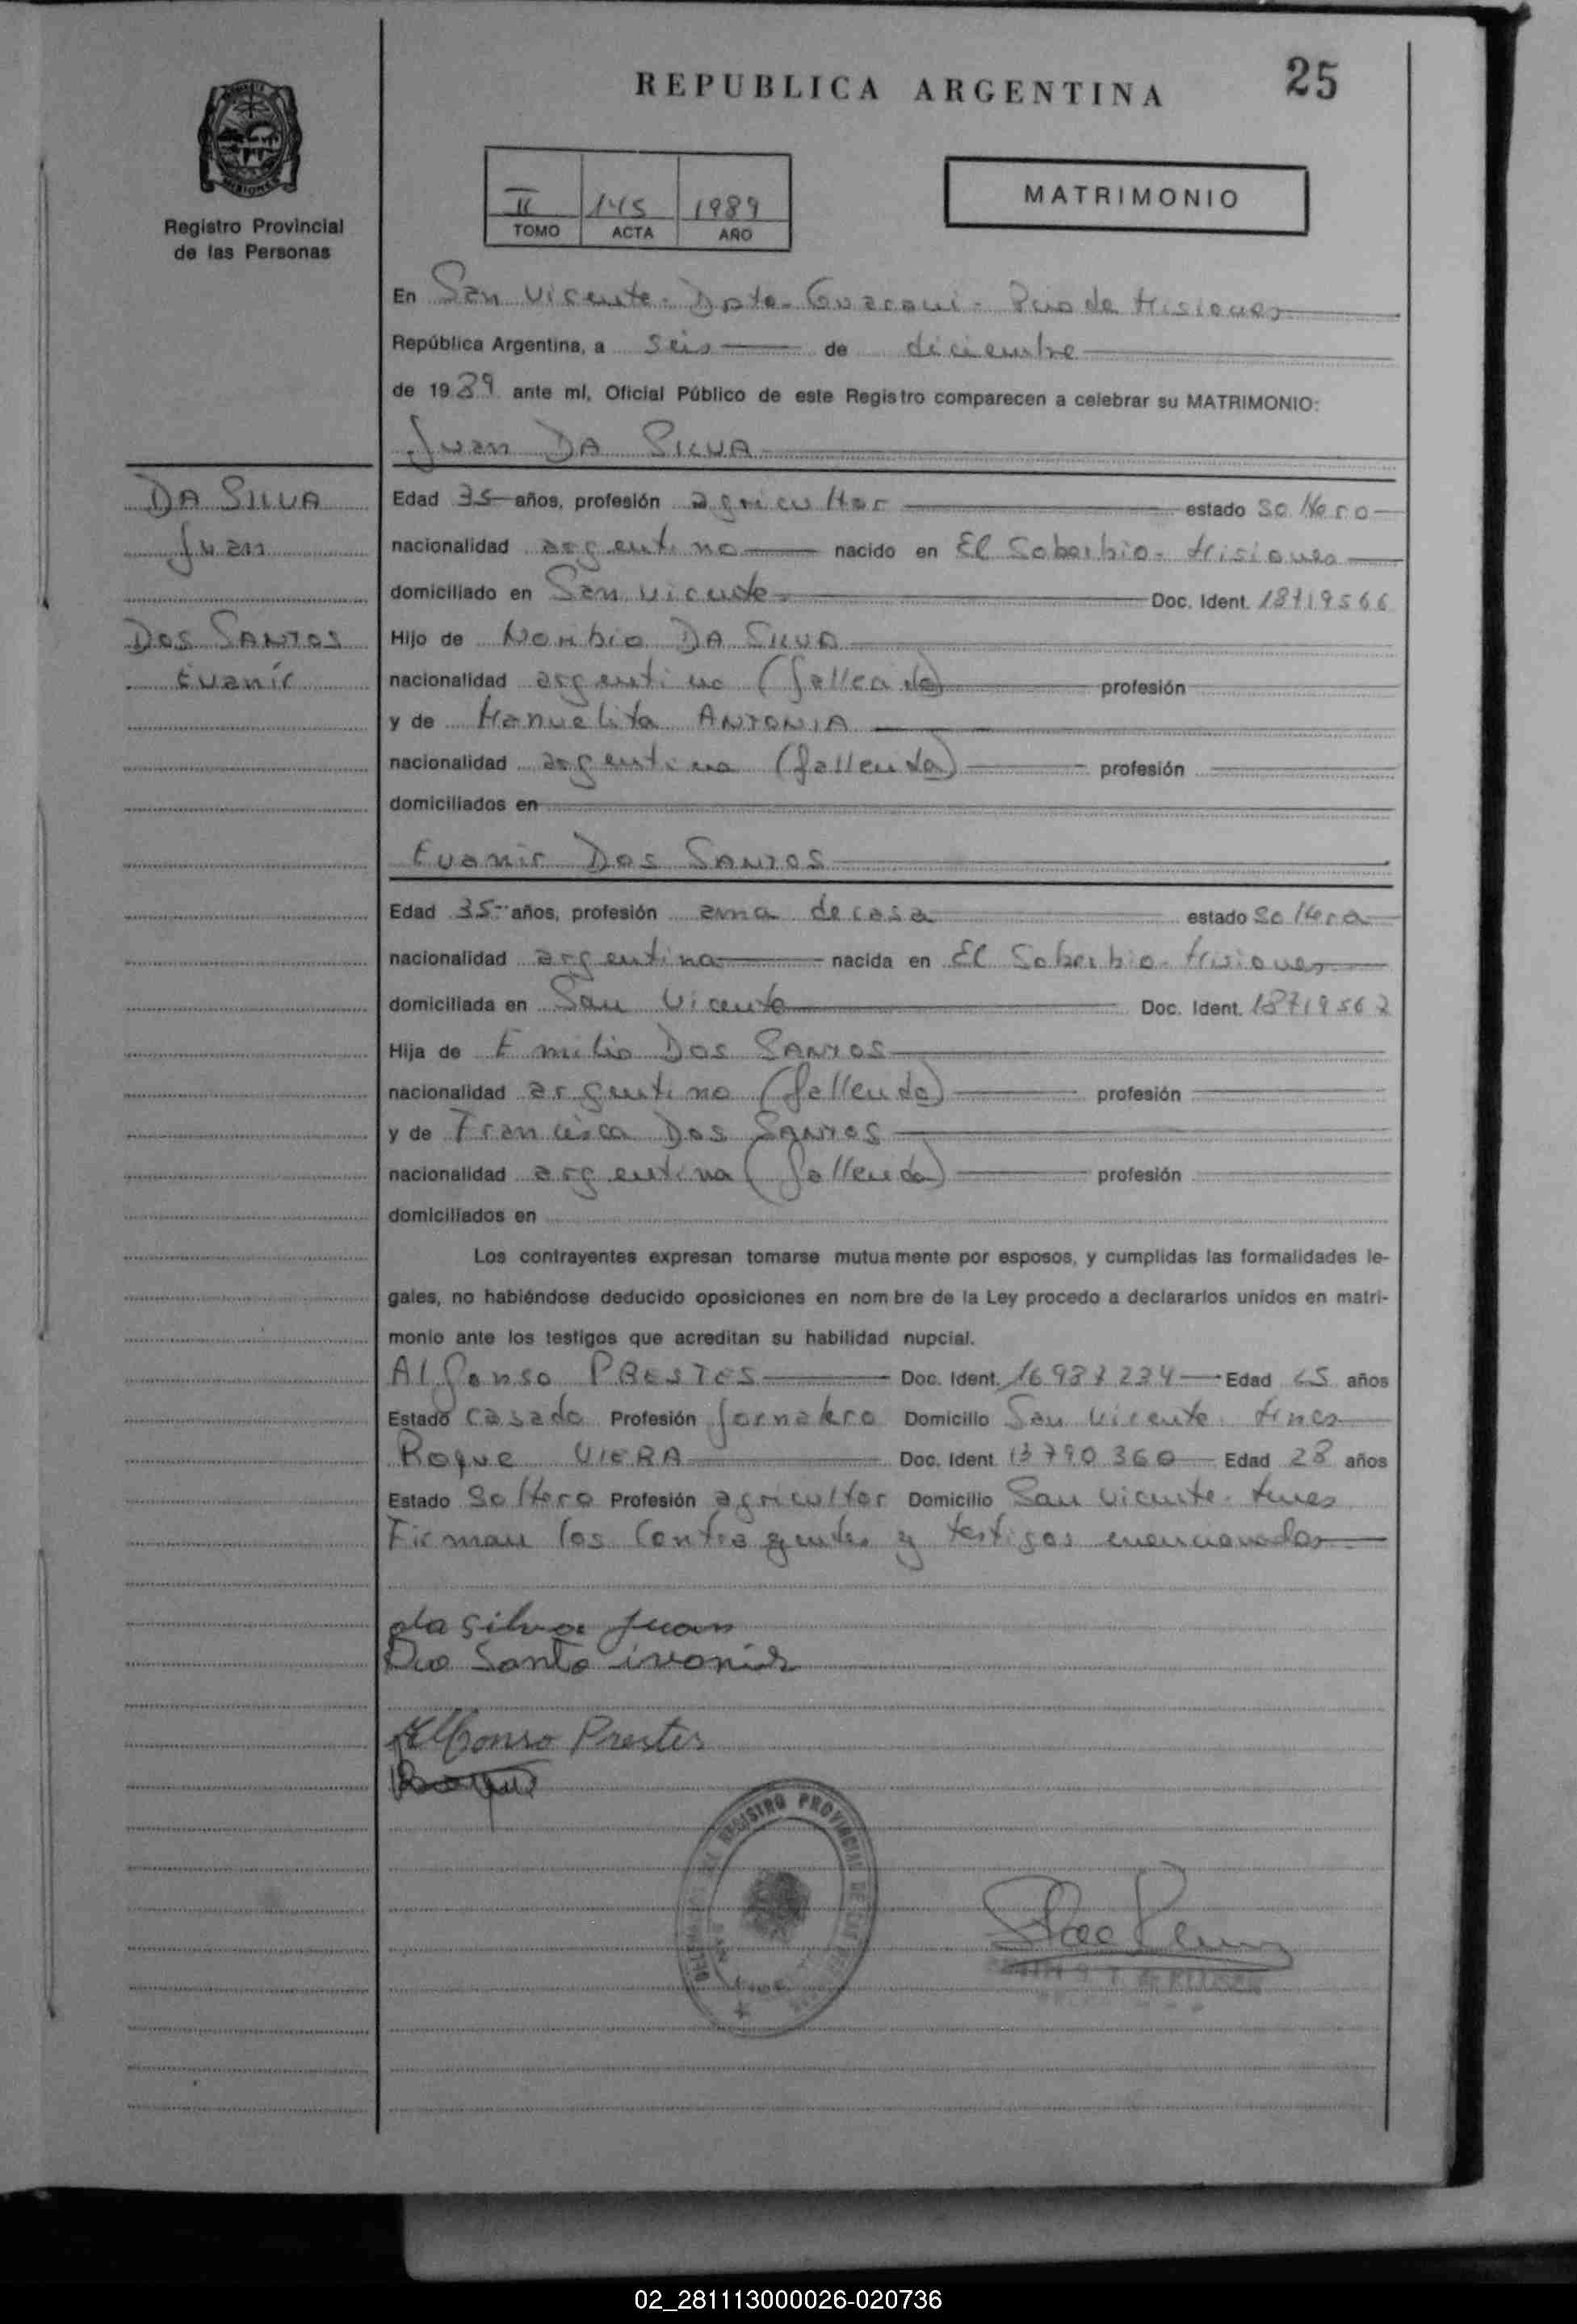 REPUBLICA ARGENTINA
25
MISIONES
Registro Provincial
de las Personas
II 145 1989
TOMO ACTA AÑO
MATRIMONIO
En San Vicente - Dpto - Guaraní - Pcia de Misiones
República Argentina, a seis de diciembre
de 1989 ante mí, Oficial Público de este Registro comparecen a celebrar su MATRIMONIO:
Juan DA SILVA
DA SILVA
Juan
DOS SANTOS
Evanir
Edad 35 años, profesión agricultor estado soltero
nacionalidad argentino nacido en El Soberbio - Misiones
domiciliado en San Vicente Doc. Ident. 18719566
Hijo de DA SILVA
nacionalidad argentino (fallecido) profesión
y de Manuelita ANTONIA
nacionalidad argentina (fallecida) profesión
domiciliados en
Evanir DOS SANTOS
Edad 35 años, profesión ama de casa estado soltera
nacionalidad argentina nacida en El Soberbio - Misiones
domiciliada en San Vicente Doc. Ident. 18719567
Hija de Emilio DOS SANTOS
nacionalidad argentino (fallecido) profesión
y de Francisca DOS SANTOS
nacionalidad argentina (fallecida) profesión
domiciliados en
Los contrayentes expresan tomarse mutuamente por esposos, y cumplidas las formalidades le-
gales, no habiéndose deducido oposiciones en nombre de la Ley procedo a declararlos unidos en matri-
monio ante los testigos que acreditan su habilidad nupcial.
Alfonso PRESTES Doc. Ident. 16987234 Edad 25 años
Estado casado Profesión jornalero Domicilio San Vicente. Mnes
Roque VIERA Doc. Ident. 13790360 Edad 28 años
Estado soltero Profesión agricultor Domicilio San Vicente. Mnes
Firman los contrayentes y testigos mencionados
da silva juan
Dos Santo ivonir
Alfonso Prestes
Roque
REGISTRO PROVINCIAL DE LAS
02_281113000026-020736